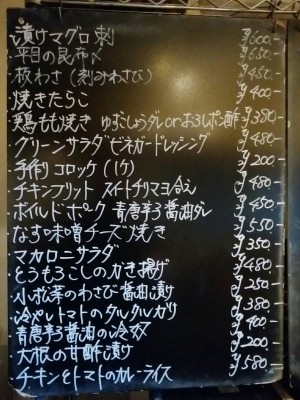 ・漬けマグロ刺 ¥600-
・平目の昆布〆 ¥650-
・板わさ(刻みわさび) ¥450-
・焼きたらこ ¥400-
・鶏もも焼き ゆずこしょうダレorおろしポン酢 ¥380-
・グリーンサラダ ビネガードレッシング ¥480-
・手作りコロッケ(1ケ) ¥200-
・チキンフリット スイートチリマヨ添え ¥480-
・ボイルドポーク 青唐辛子醤油ダレ ¥450-
・なす味噌チーズ焼き ¥550-
・マカロニサラダ ¥350-
・とうもろこしのかき揚げ ¥480-
・小松菜のわさび醤油漬け ¥250-
・冷やしトマトのタルタルガリ ¥380-
・青唐辛子醤油の冷奴 ¥400-
・大根の甘酢漬け ¥200-
・チキンとトマトのカレーライス ¥580-